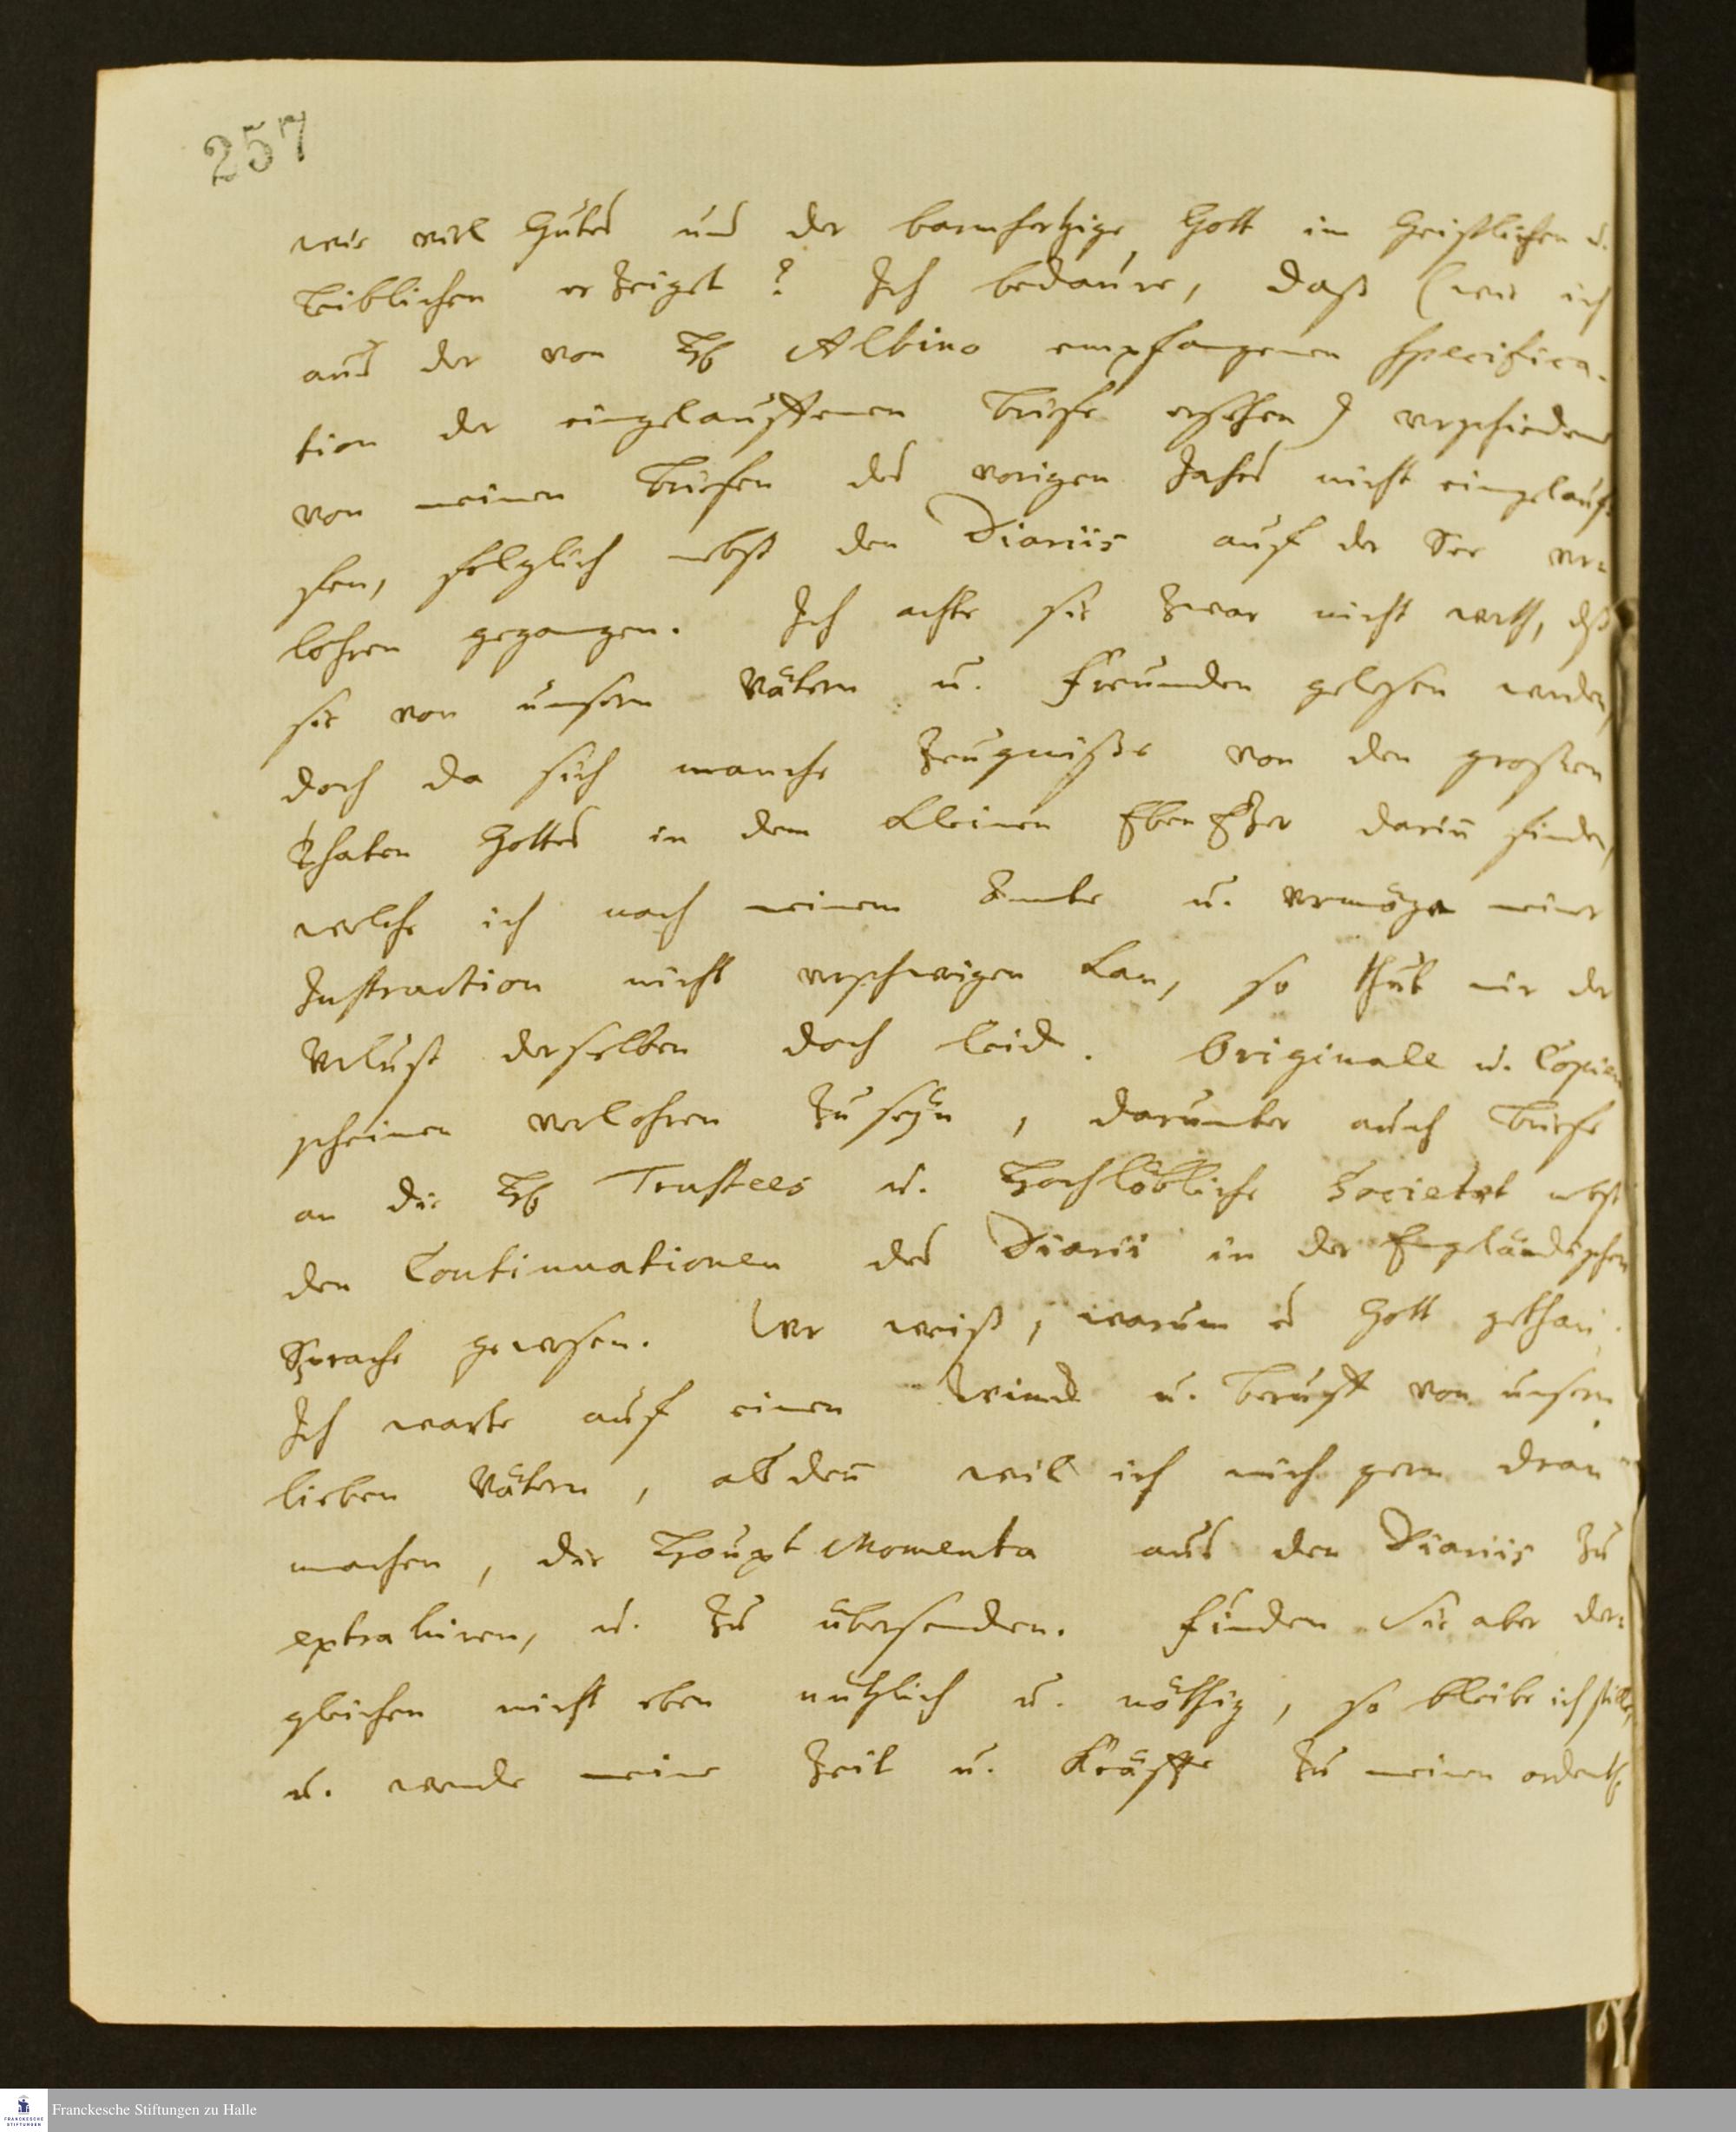 257
wie viel Gutes uns der barmhertzige Gott im Geistlichen u.
Leiblichen erzeiget? Ich bedaure, daß (wie ich
aus der von H. Albino empfangenen Specifica-
tion der eingelauffenen Briefe ersehen) verschiedene
von meinen Briefen des vorigen Jahres nicht eingelauf-
fen, folglich nebst den Diariis auf der See ver-
lohren gegangen. Ich achte sie zwar nicht werth, dß
sie von unsern Vätern u. Freunden gelesen werden,
doch da sich manche Zeugniße von den großen
Thaten Gottes in dem kleinen EbenEzer darin finden,
welche ich nach meinem Amte u. vermöge meiner
Instruction nicht verschweigen kan, so thut mir der
Verlust derselben doch leid. Originale u. Copien
scheinen verlohren zu seyn, darunter auch Briefe
an die H. Trustees u. Hochlöbliche Societet nebst
den Continuationen des Diarii in der Engländischen
Sprache gewesen. Wer weiß, warum es Gott gethan.
Ich warte auf einen Winck u. Beruff von unsern
lieben Vätern, alsden will ich mich gern dran
machen, die Haupt Momenta aus den Diariis zu
extrahiren, u. zu übersenden. Finden Sie aber der-
gleichen nicht eben nützlich u. nöthig, so bleibe ich stille,
u. wende meine Zeit u. Kräffte zu meinen ordentl.
Franckesche Stiftungen zu Halle
FRANCKESCHE
STIFTUNGEN